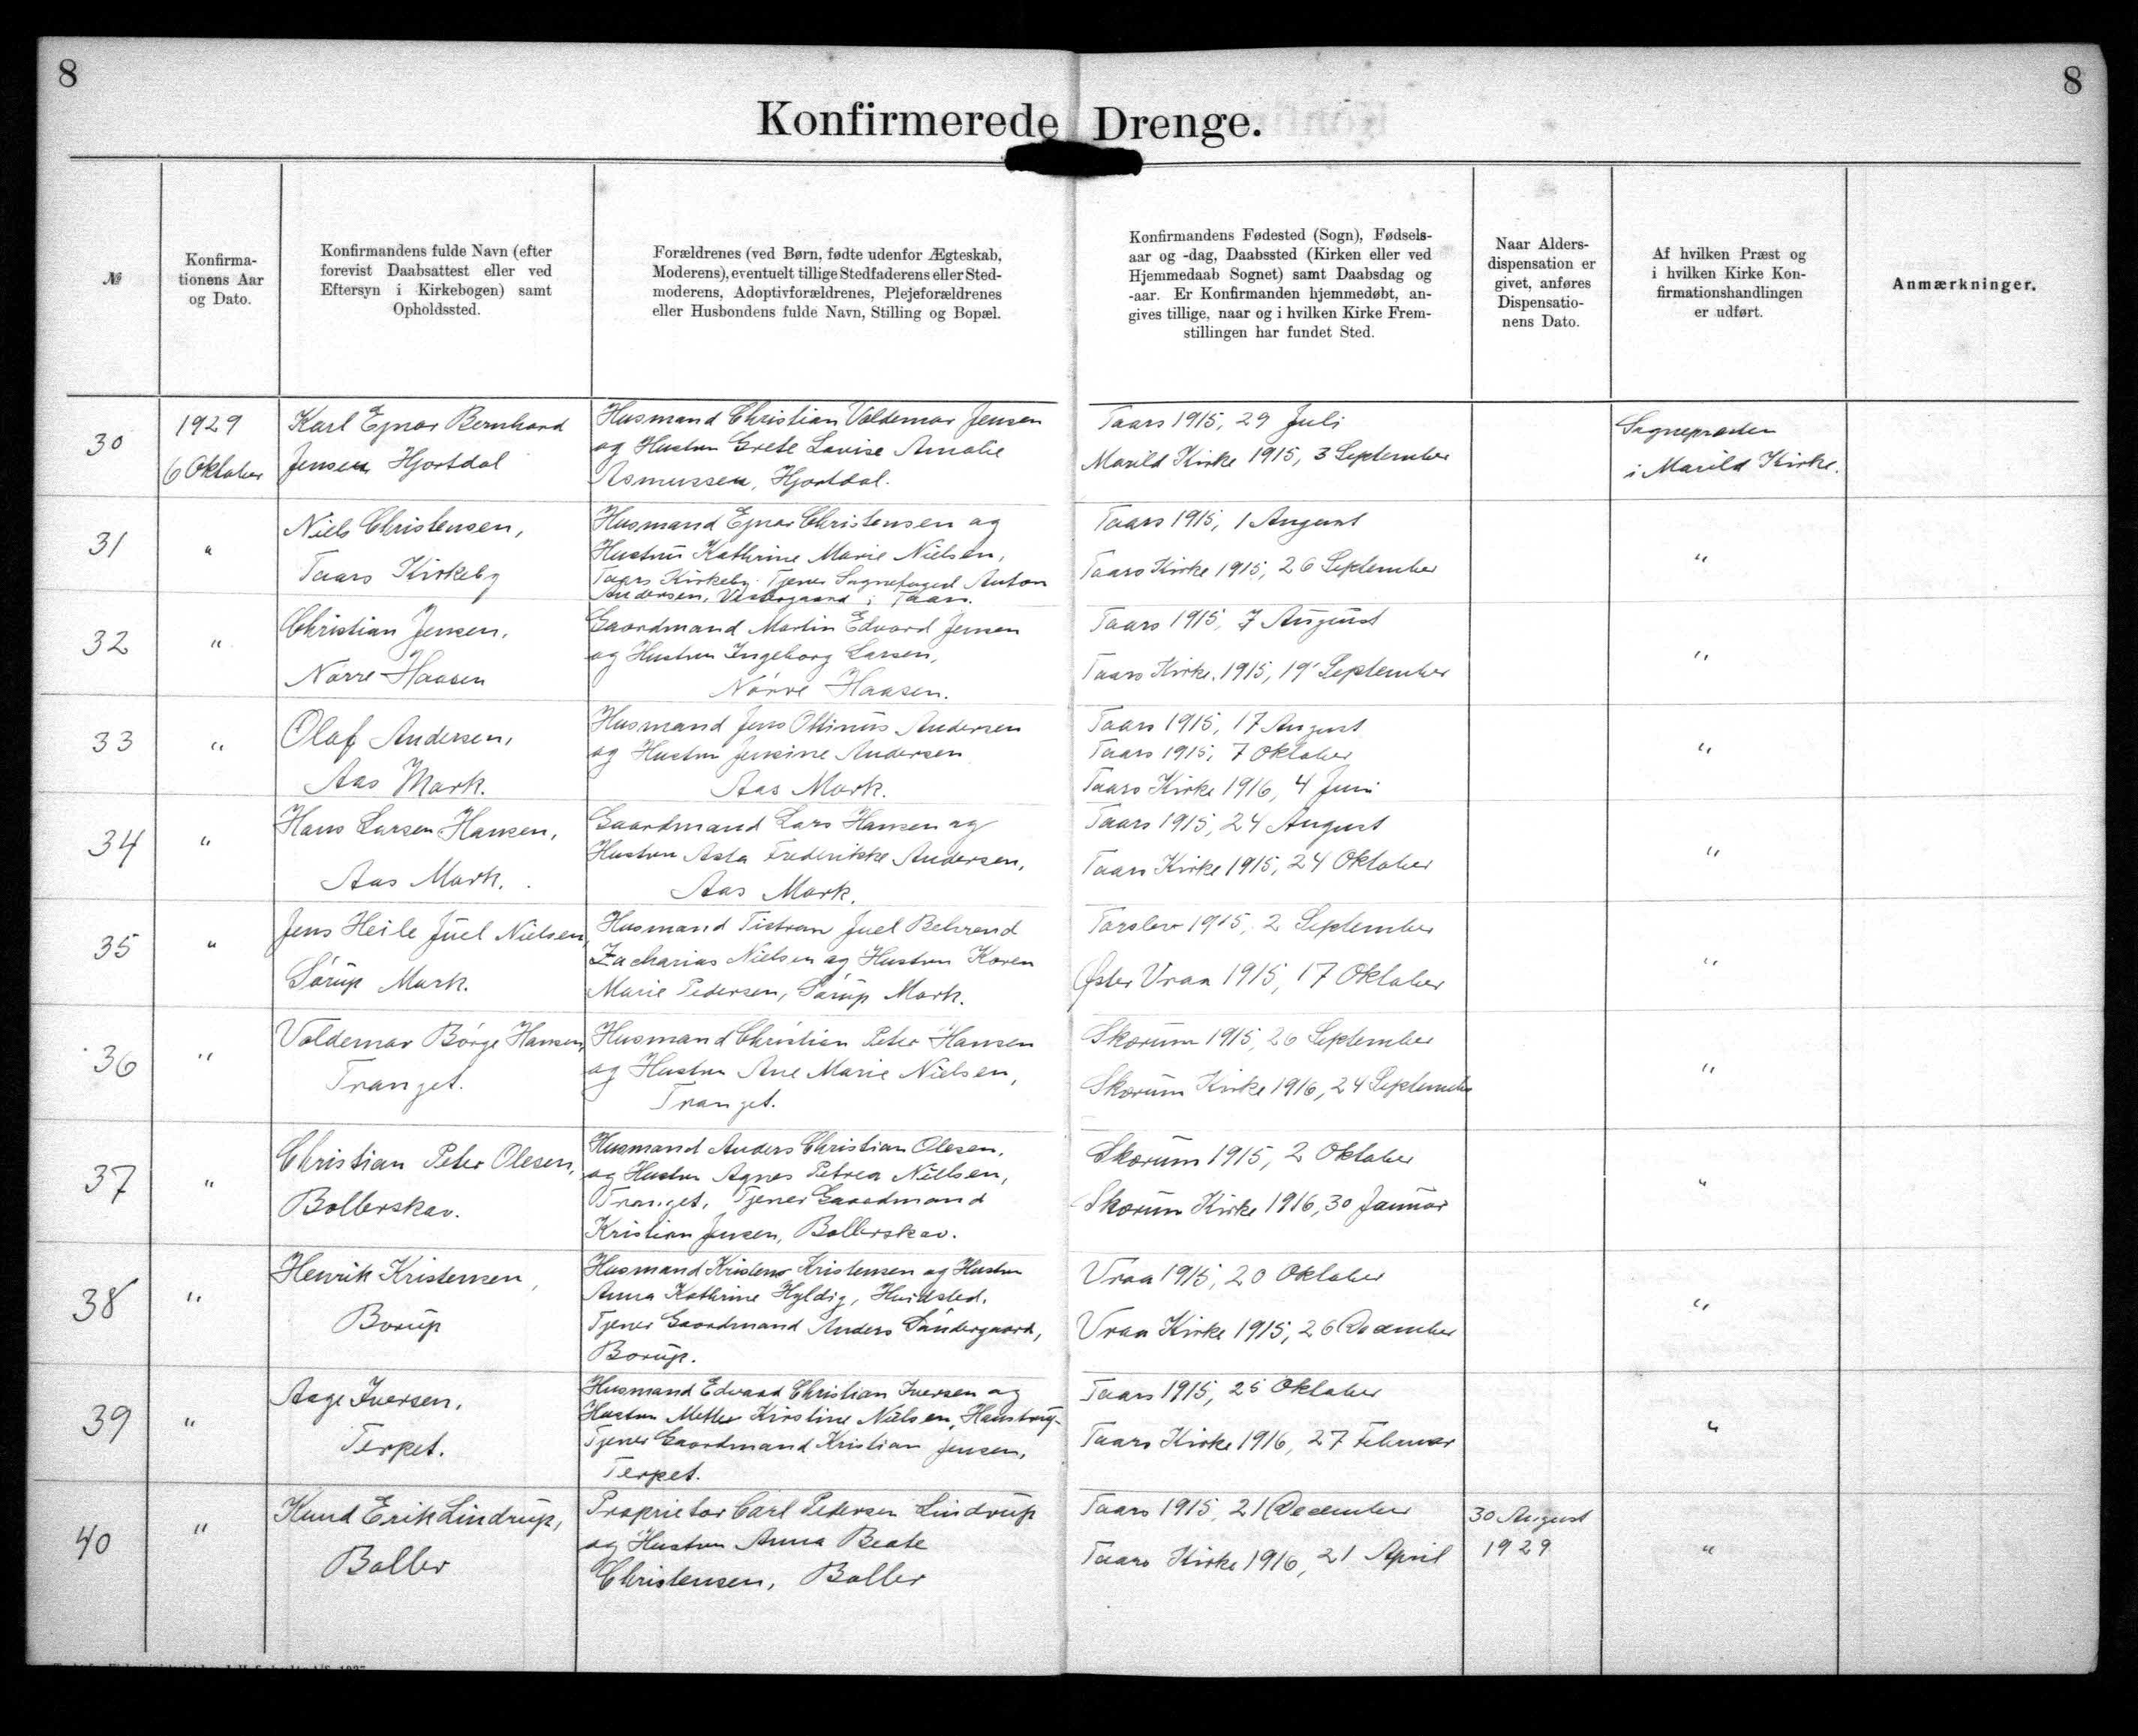 8
8
Konfirmerede Drenge.
№
Konfirma-
tionens Aar
og Dato.
Konfirmandens fulde Navn (efter
forevist Daabsattest eller ved
Eftersyn i Kirkebogen) samt
Opholdssted.
Forældrenes (ved Børn, fødte udenfor Ægteskab,
Moderens), eventuelt tillige Stedfaderens eller Sted-
moderens, Adoptivforældrenes, Plejeforældrenes
eller Husbondens fulde Navn, Stilling og Bopæl.
Konfirmandens Fødested (Sogn), Fødsels-
aar og -dag, Daabssted (Kirken eller ved
Hjemmedaab Sognet) samt Daabsdag og
-aar. Er Konfirmanden hjemmedøbt, an-
gives tillige, naar og i hvilken Kirke Frem-
stillingen har fundet Sted.
Naar Alders-
dispensation er
givet, anføres
Dispensatio-
nens Dato.
Af hvilken Præst og
i hvilken Kirke Kon-
firmationshandlingen
er udført.
Anmærkninger.
30
1929
6 Oktober
Karl Ejnar Bernhard
Jensen, Hjortdal
Husmand Christian Valdemar Jensen
og Hustru Grete Lovise Amalie
Asmussen, Hjortdal.
Taars 1915, 29 Juli
Marild Kirke 1915, 3 September
Sognepræsten
i Marild Kirke.
31
"
Niels Christensen,
Taars Kirkeby
Husmand Ejnar Christensen og
Hustru Kathrine Marie Nielsen,
Taars Kirkeby. Tjener Sognefoged Anton
Andersen, Vestergaard i Taars.
Taars 1915, 1 August
Taars Kirke 1915, 26 September
"
32
"
Christian Jensen,
Nørre Haasen
Gaardmand Martin Edvard Jensen
og Hustru Ingeborg Larsen,
Nørre Haasen.
Taars 1915, 7 August
Taars Kirke 1915, 19 September
"
33
"
Olaf Andersen,
Aas Mark.
Husmand Jens Ottinus Andersen
og Hustru Jensine Andersen
Aas Mark.
Taars 1915, 17 August
Taars 1915, 7 Oktober
Taars Kirke 1916, 4 Juni
"
34
"
Hans Larsen Hansen,
Aas Mark.
Gaardmand Lars Hansen og
Hustru Asta Frederikke Andersen,
Aas Mark.
Taars 1915, 24 August
Taars Kirke 1915, 24 Oktober
"
35
"
Jens Heile Juel Nielsen,
Sørup Mark.
Husmand Tistran Juel Behrend
Zacharias Nielsen og Hustru Karen
Marie Pedersen, Sørup Mark.
Torslev 1915, 2 September
Øster Vraa 1915, 17 Oktober
"
36
"
Valdemar Børge Hansen,
Tranget.
Husmand Christian Peter Hansen
og Hustru Ane Marie Nielsen,
Tranget.
Skærum 1915, 26 September
Skærum Kirke 1916, 24 September
"
37
"
Christian Peter Olesen,
Bollerskov.
Husmand Anders Christian Olesen,
og Hustru Agnes Petrea Nielsen,
Tranget. Tjener Gaardmand
Kristian Jensen, Bollerskov.
Skærum 1915, 2 Oktober
Skærum Kirke 1916, 30 Januar
"
38
"
Henrik Kristensen,
Borup
Husmand Kristens Kristensen og Hustru
Anna Kathrine Hyldig, Hvidsted.
Tjener Gaardmand Anders Søndergaard,
Borup.
Vraa 1915, 20 Oktober
Vraa Kirke 1915, 26 December
"
39
"
Aage Iversen,
Terpet.
Husmand Edvard Christian Iversen og
Hustru Mette Kirstine Nielsen,
Tjener Gaardmand Kristian Jensen,
Terpet.
Taars 1915, 25 Oktober
Taars Kirke 1916, 27 Februar
"
40
"
Knud Erik Lindrup,
Boller
Proprietær Carl Pedersen Lindrup
og Hustru Anna Beate
Christensen, Boller
Taars 1915, 21 December
Taars Kirke 1916, 21 April
30 August
1929
"